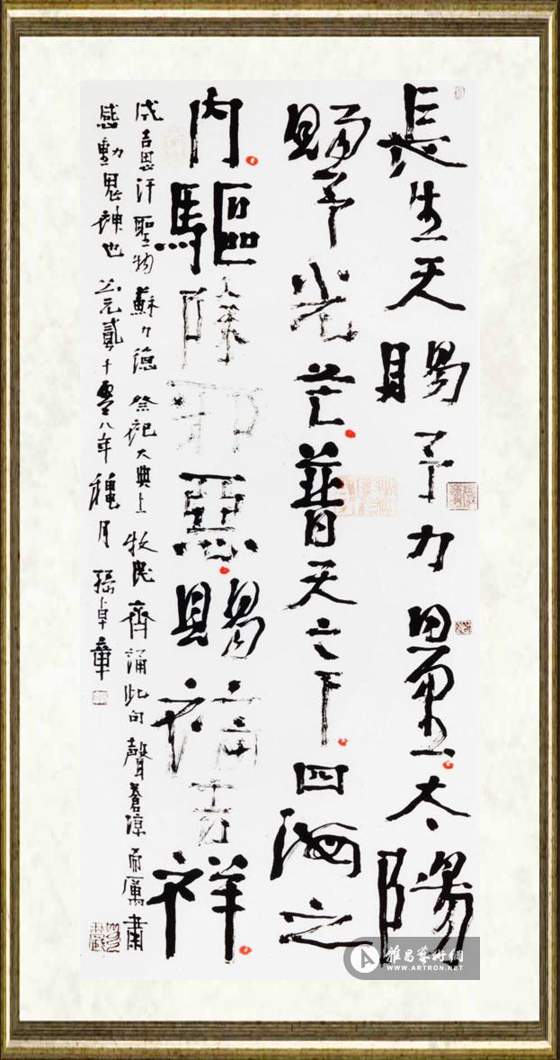 長生天賜予力量太陽
賜予光芒普天之下四海之
内驅除邪惡賜福吉祥
成吉思汗聖物蘇力德祭祀大典上牧民齊誦此句聲蒼涼而厲肅
感動鬼神也公元貳千零八年穐月張卓章
雅昌藝術網
WWW.ARTRON.NET